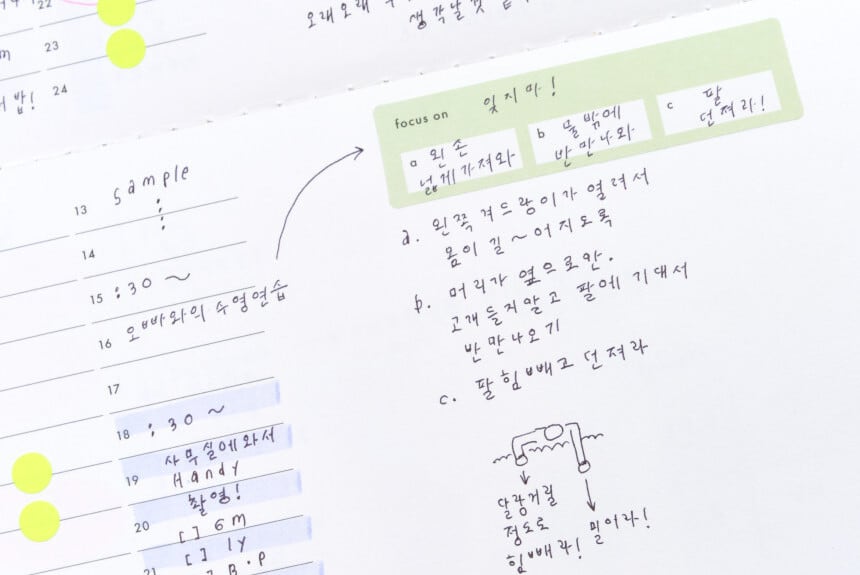 22
23
24
밥!
오래오래
생각날 것
13 Sample
14
15 :30 ~
16 오빠와의 수영연습
17
18 :30 ~
사무실에와서
19 Handy
촬영!
20 [ ] 6m
[ ] ly
21 B.P
focus on 잊지마!
a 왼손
넓게가져와
b 물밖에
반만나와
c 팔
던져라!
a. 왼쪽 겨드랑이가 열려서
몸이 길~어지도록
b. 머리가 옆으로만.
고개들지말고 팔에 기대서
반만나오기
c. 팔힘빼고 던져라
달랑거릴
정도로
힘빼라!
밀어라!